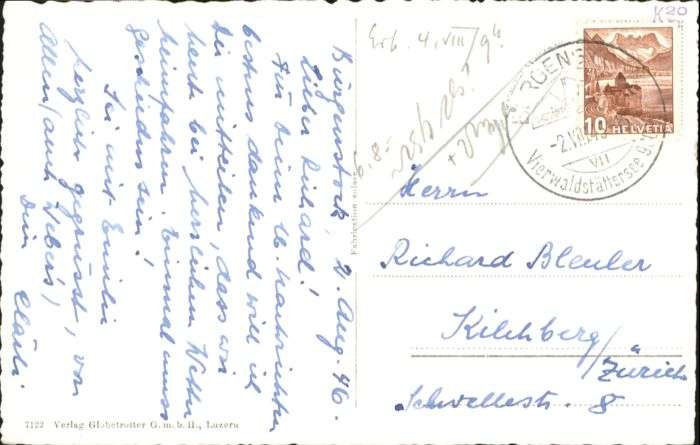 Bürgenstock, 2. Aug. 46.
Lieber Richard!
Für deine lb. Nachrichten
bestens dankend will ich
dir mitteilen, dass wir
heute bei herrlichem Wetter
heimfahren. Einmal muss
geschieden sein!
Sei mit Emilie
herzlich gegrüsst, von
allen (auch Webers)
Dein
7122 Verlag Globetrotter G. m. b. H., Luzern
Fabrication suisse
Erh. 4. VIII / 9 h
6. 8.
K20
10 HELVETIA
BÜRGENSTOCK
-2.VIII.46
VII
Vierwaldstättersee
Herrn
Richard Bleuler
Kilchberg/
Zürich
Schwellestr. 8